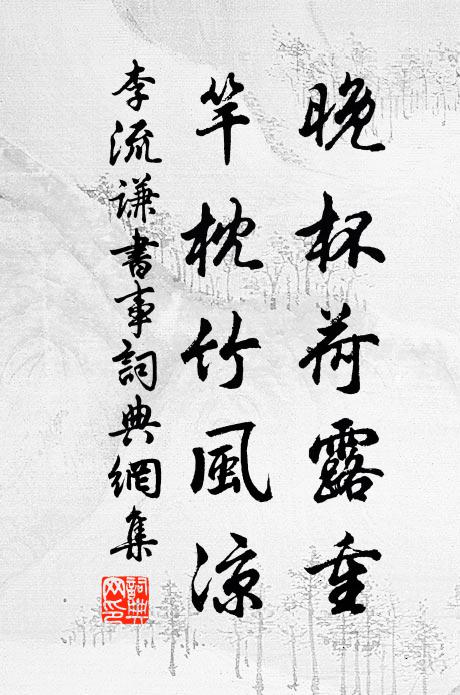 晚杯荷露重
竿枕竹風涼
李流謙書事詞典網集
詞典